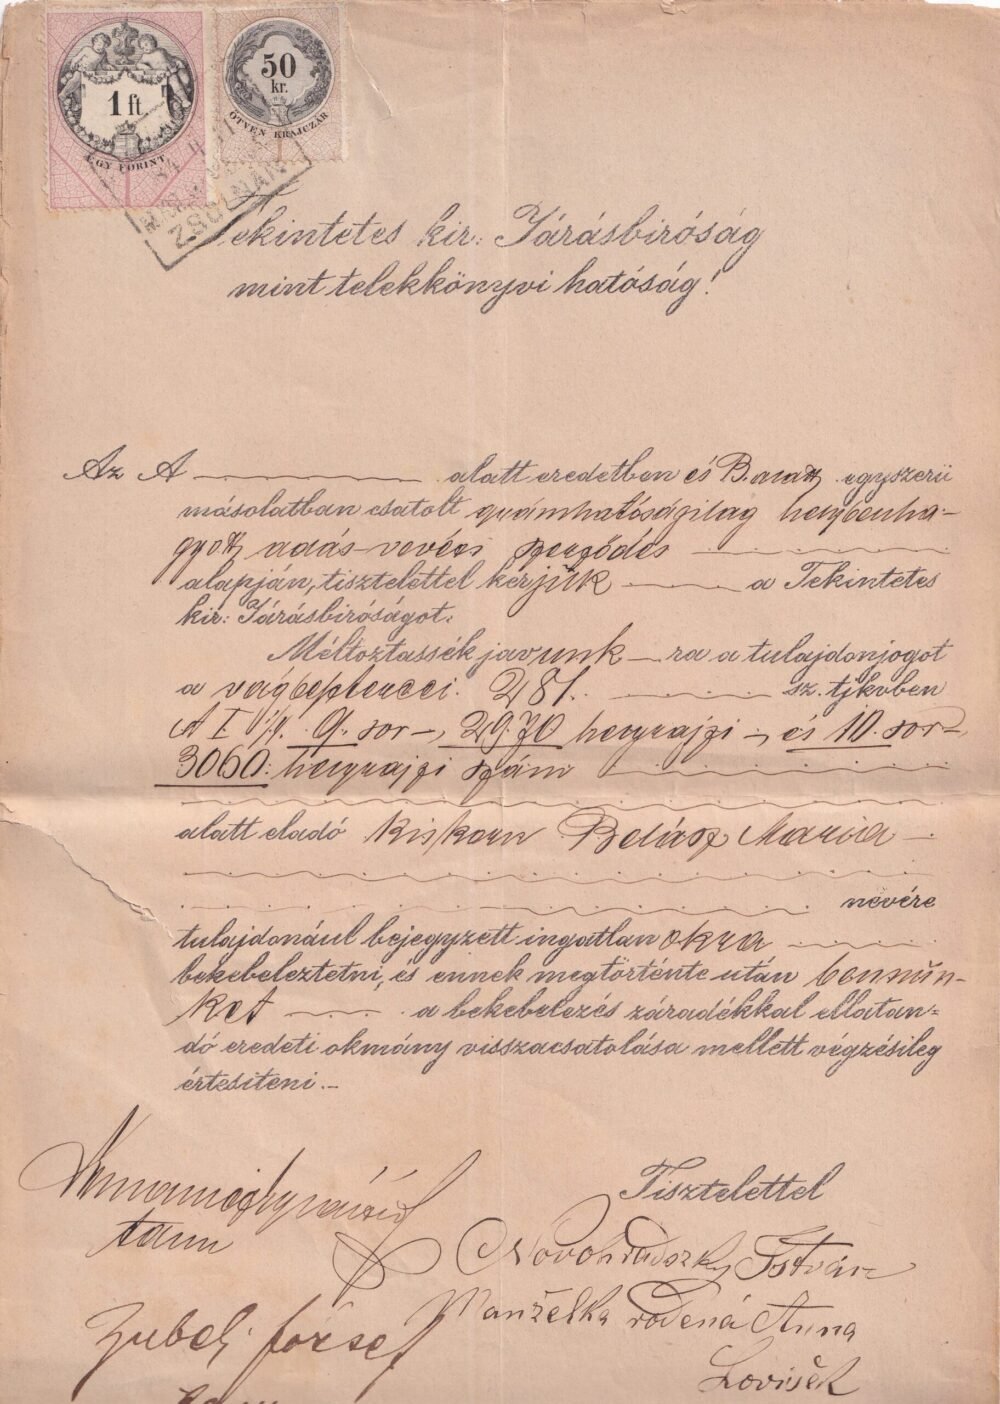 1 ft.
EGY FORINT
50
kr.
ÖTVEN KRAJCZÁR
ZSOLNÁN
Tekintetes kir: Járásbiróság
mint telekkönyvi hatóság!
Az A alatt eredetben és B. alatt egyszerü
másolatban csatolt gyámhatóságilag helybenha-
gyott adás-vevési szerződés
alapján, tisztelettel kérjük a Tekintetes
kir: Járásbiróságot.
Méltoztassék javunk-ra a tulajdonjogot
a vágbeszterczei 281. sz. tjkvben
A I 9. sor-, 2970 helyrajzi -, és 10. sor-
3060: helyrajzi szám
alatt eladó kiskoru Balász Maria
nevére
tulajdonául bejegyzett ingatlan okra
bekebeleztetni, és ennek megtörténte után bennün-
ket a bekebelezés záradékkal ellatan-
dó eredeti okmány visszacsatolása mellett végzésileg
értesiteni.-
Tisztelettel
tanu
Novohradszky István
Manželka rodená Anna
Zubek József
Lovišek